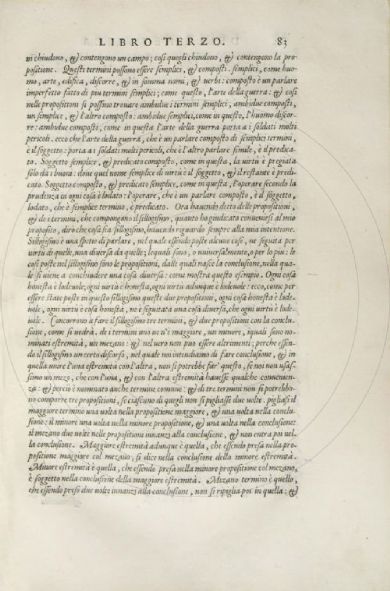 LIBRO TERZO. 83
ni chiudono, & contengono un campo; cosi quegli chiudono, & contengono la pro
positione. Questi termini possono essere semplici, & composti. semplici, come huo
mo, arte, edifica, discorre, & in somma nomi, & verbi: composto è un parlare
imperfetto fatto di piu termini semplici; come questo, l'arte della guerra: & cosi
nelle propositioni si possino trouare ambidue i termini semplici, ambidue composti,
un semplice, & l'altro composto: ambidue semplici, come in questo, l'huomo discor
re: ambidue composti; come in questa l'arte della guerra porta a i soldati molti
pericoli. ecco che l'arte della guerra, che è un parlare composto di semplici termini,
è il soggetto: porta a i soldati molti pericoli, che è l'altro parlare simile, è il predica
to. Soggetto semplice, & predicato composto, come in questa, la uirtù è pregiata
solo da i buoni: doue quel nome semplice di uirtù è il soggetto, & il restante è predi
cato. Soggetto composto, & predicato semplice, come in questa, l'operare secondo la
prudenza in ogni cosa è lodato: l'operare, che è un parlare composto, è il soggetto,
lodato, che è semplice termine, è predicato. Ora hauendo detto delle propositioni,
& de i termini, che compongano il sillogismo, quanto ho giudicato conuenirsi al mio
proposito, dirò che cosa sia sillogismo, hauendo riguardo sempre alla mia intentione.
Sillogismo è una spetie di parlare, nel quale essendo poste alcune cose, ne seguita per
uirtù di quelle, una diuersa da quelle; lequali sono, o uniuersalmente, o per lo piu: le
cosi poste nel sillogismo sono le propositioni, dalle quali nasce la conclusione, nella qua
le si uiene a conchiudere una cosa diuersa: come mostra questo esempio. Ogni cosa
honesta è lodeuole, ogni uirtù è honesta, ogni uirtù adunque è lodeuole: ecco, come per
essere state poste in questo sillogismo queste due propositioni, ogni cosa honesta è lode
uole, ogni uirtù è cosa honesta, ne è seguitata una cosa diuersa, che ogni uirtù è lode
uole. Concorrono a fare il sillogismo tre termini, & due propositioni con la conclu
sione, come si uedrà. de i termini uno si è maggiore, un minore, iquali sono no
minati estremità, un mezano: & nel uero non può essere altrimenti; perche essen
do il sillogismo un certo discorso, nel quale noi intendiamo di fare conclusione, & in
quella unire l'una estremità con l'altra, non si potrebbe far questo, se noi non usas
simo un mezo, che con l'una, & con l'altra estremità hauesse qualche conuenien
za: & perciò è nominato anche termine comune: & di tre termini non si potrebbo
no comporre tre propositioni, se ciascuno di quegli non si pigliasse due uolte. pigliasi il
maggiore termino una uolta nella propositione maggiore, & una uolta nella conclu
sione: il minore una uolta nella minore propositione, & una uolta nella conclusione:
il mezano due uolte nelle propositioni innanzi alla conclusione, & non entra poi nel
la conclusione. Maggiore estremità adunque è quella, che essendo presa nella pro
positione maggiore col mezano, si dice nella conclusione della minore estremità.
Minore estremità è quella, che essendo presa nella minore propositione col mezano,
è soggetto nella conclusione della maggiore estremità. Mezano termino è quello,
che essendo preso due uolte innanzi alla conclusione, non si ripiglia poi in quella: &